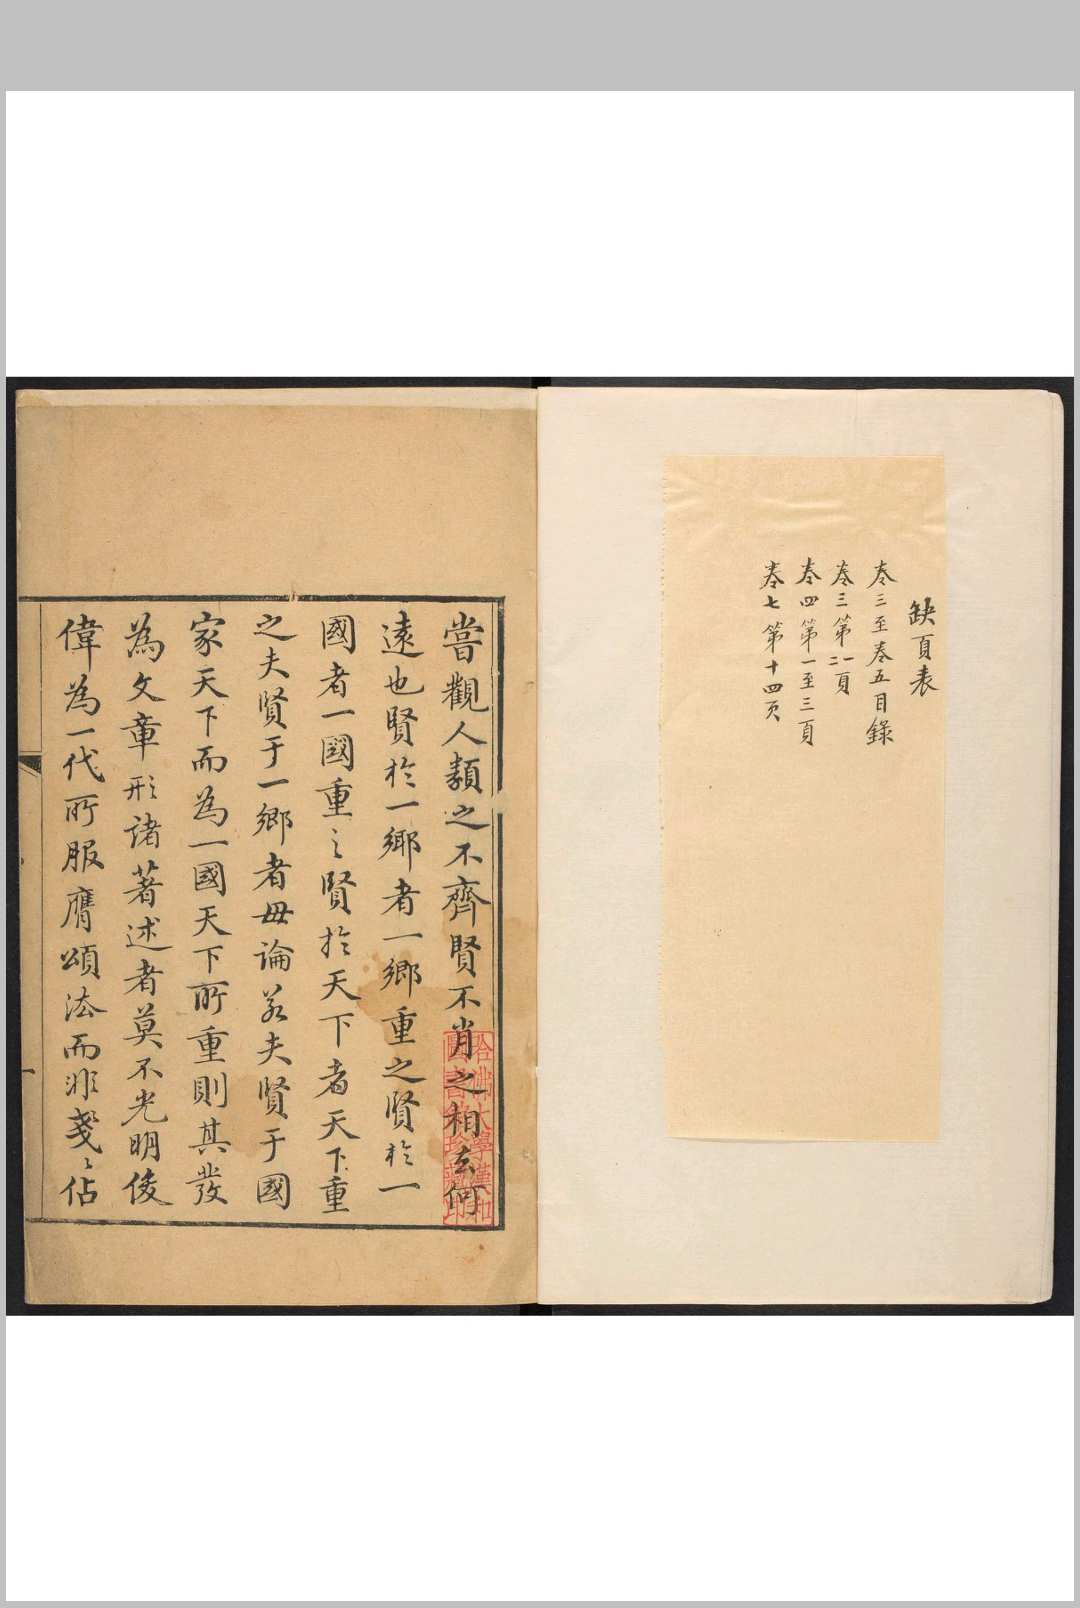 缺頁表
卷三至卷五目錄
卷三第一二頁
卷四第一至三頁
卷七第十四页
嘗觀人類之不齊賢不肖之相去何
遠也賢於一鄉者一鄉重之賢於一
國者一國重之賢於天下者天下重
之夫賢于一鄉者毋論若夫賢于國
家天下而為一國天下所重則其發
為文章形諸著述者莫不光明俊
偉為一代所服膺頌法而非戔〻佔
哈佛大學漢和
圖書館珍藏印